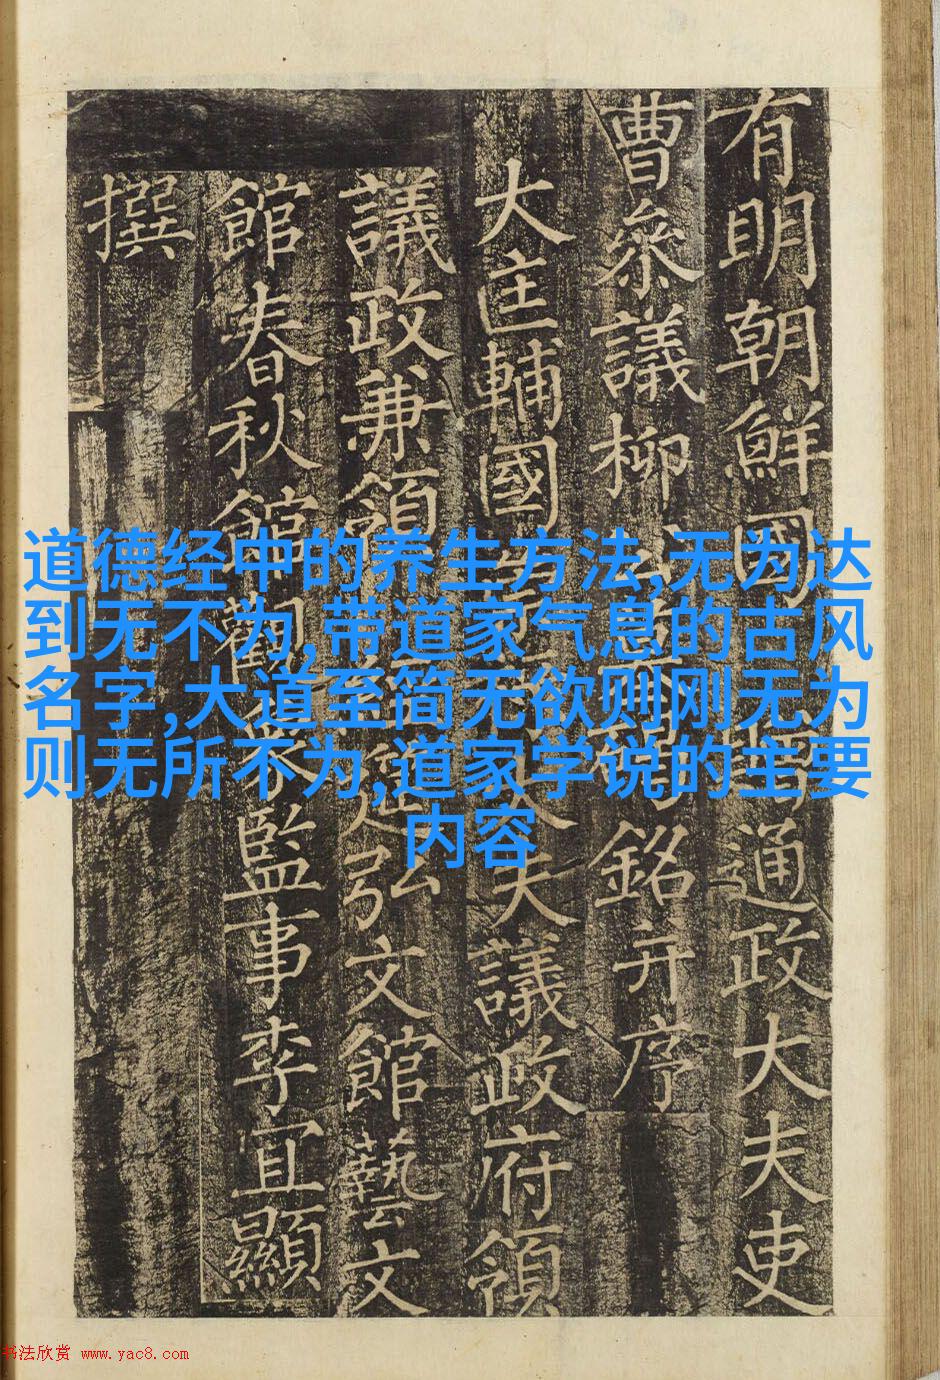 有明朝鮮國通政大夫吏
曹參議柳銘并序
大匡輔國夫議政府領
議政兼領筵弘文館藝文
館春秋館觀象監事李宜顯
撰
道德经中的养生方法,无为达
到无不为,带道家气息的古风
名字,大道至简无欲则刚无为
则无所不为,道家学说的主要
内容
书法欣赏 www.yac8.com